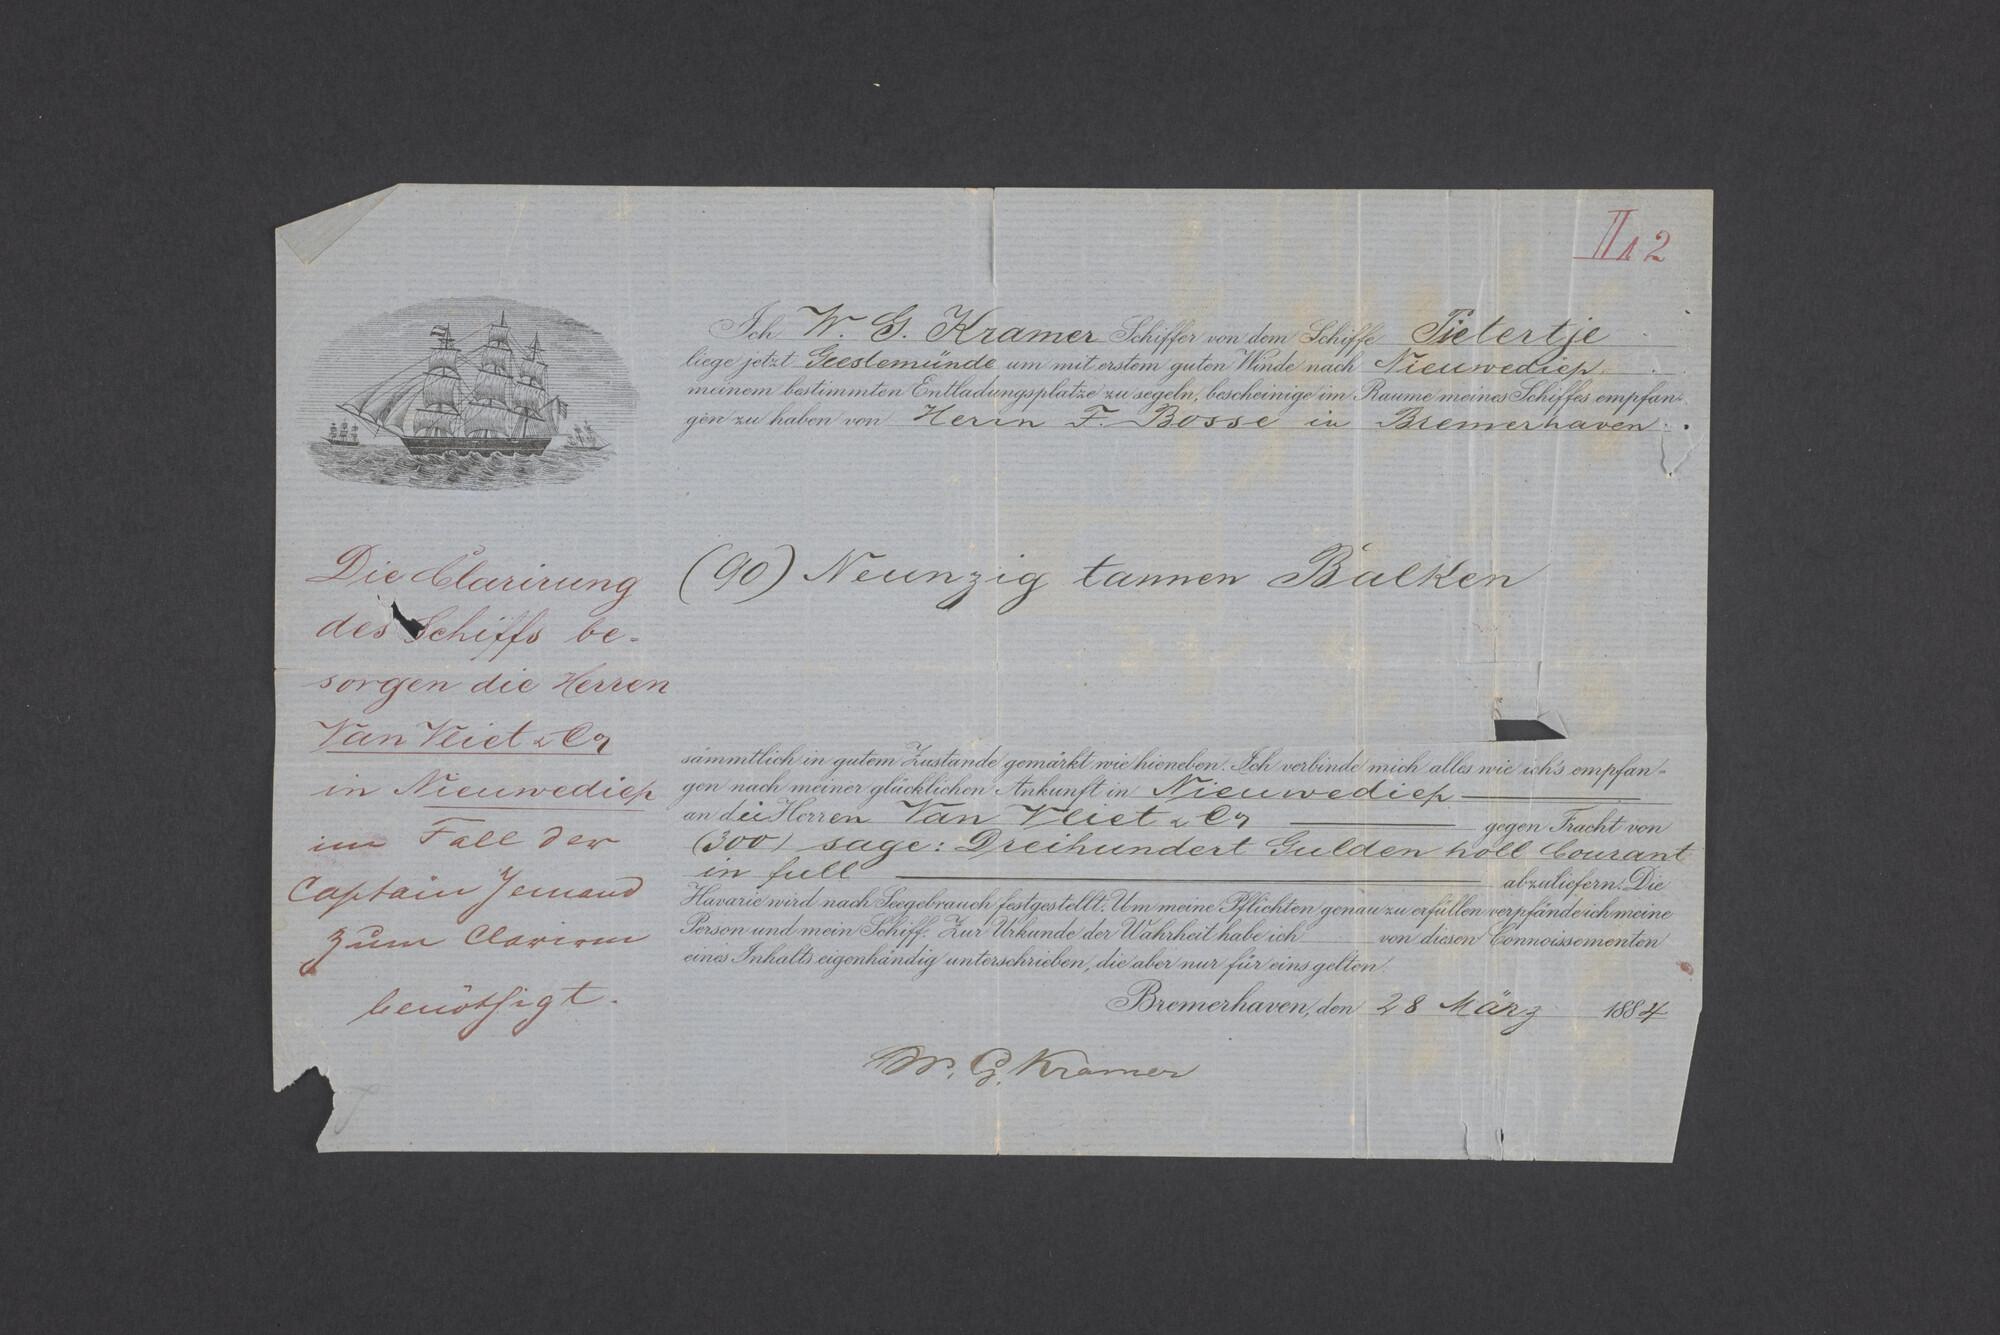 II 2
Ich W. G. Kramer Schiffer von dem Schiffe Pietertje
liege jetzt Geestemünde um mit erstem guten Winde nach Nieuwediep
meinem bestimmten Entladungsplatze zu segeln, bescheinige im Raume meines Schiffes empfan-
gen zu haben von Herrn F. Bosse in Bremerhaven
(90) Neunzig tannen Balken
Die Clarirung
des Schiffs be-
sorgen die Herren
Van Vliet & Co
in Nieuwediep
im Fall der
Captain Jemand
zum Clariren
benöthigt.
sämmtlich in gutem Zustande gemärkt wie hieneben. Ich verbinde mich alles wie ich's empfan-
gen nach meiner glücklichen Ankunft in Nieuwediep
an die Herren Van Vliet & Co gegen Fracht von
(300) sage: Dreihundert Gulden holl Courant
in full abzuliefern. Die
Havarie wird nach Seegebrauch festgestellt. Um meine Pflichten genau zu erfüllen verpfände ich meine
Person und mein Schiff. Zur Urkunde der Wahrheit habe ich von diesen Connoissementen
eines Inhalts eigenhändig unterschrieben, die aber nur für eins gelten.
Bremerhaven, den 28 März 1884
W. G. Kramer